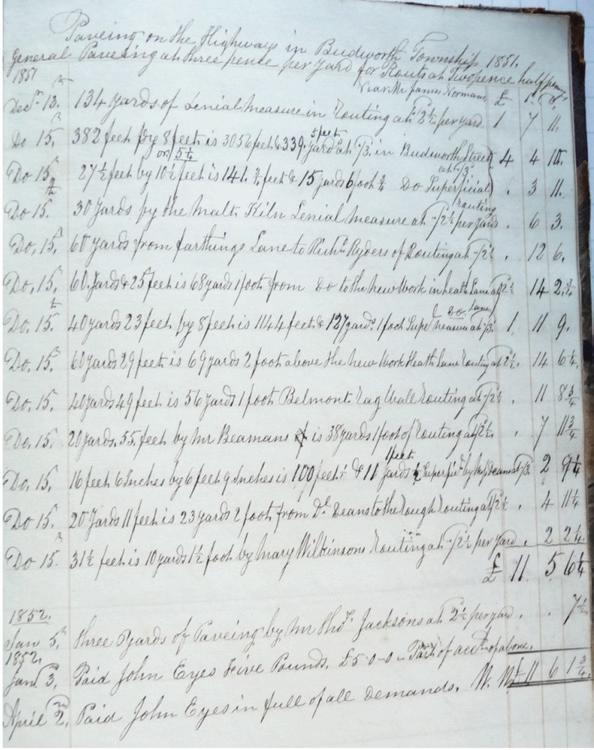 Paveing on the Highways in Budworth Township 1851.
General Paveing at three pence per yard for Routs at Twopence half penny
1851 near Mr James Normans £ s d
Decr. 13. 134 yards of Lenial Measure in Routing at 2½ per yard 1 7 11.
Do 15. 382 feet by 8 feet is 3056 feet & 339 yards 5 feet at /3. in Budworth Street 4 4 10.
Do 15. 27½ feet by 10½ feet is 141. feet & 15 yards 6 feet Do Superficial at /3. . 3 11
Do 15. 30 yards by the Malt Kiln Lenial measure at /2½ per yard routing . 6 3.
Do. 15. 60 yards from farthings Lane to Richd. Ryders of Routing at /2½ . 12 6.
Do. 15. 60 yards & 25 feet is 68 yards 1 foot from Do to the New Work in heath Lane at /2½ 14 2½
Do. 15. 40 yards 23 feet by 8 feet is 1144 feet & 127 yards. 1 foot Supe. Measure at /3 Do Lane 1. 11 9.
Do. 15. 60 yards 29 feet is 69 yards 2 foot above the New Work Heath Lane Routing at /2½. . 14 6¼.
Do. 15. 40 yards 49 feet is 56 yards 1 foot Belmont Rag Wall Routing at /2½ . 11 8¾
Do. 15. 20 yards. 55 feet by Mr Beamans is 38 yards 1 foot of Routing at /2½. . 7 11¾
Do. 15. 16 feet 6 Inches by 6 feet 9 Inches is 100 feet & 11 yards 1 feet Superfil. by Mr Beamans at /3. 2 9¼
Do. 15 20 yards 11 feet is 23 yards 2 foot from Dl. Deans to the Rough Routing at /2½ . 4 11¼
Do 15. 31½ feet is 10 yards 1½ foot by Mary Wilkinsons Routing at /2½ per yard . 2 2¼.
£ 11. 5 6¼
1852.
Jan 5th. three yards of Paveing by Mr Thos. Jacksons at 2½ per yard. . . 7½
1852.
Jany 3. Paid John Eyes Five Pounds. £5-0-0 - Part of acct of above.
April 2d. Paid John Eyes in full of all demands. W. W. £11 6 1¾.